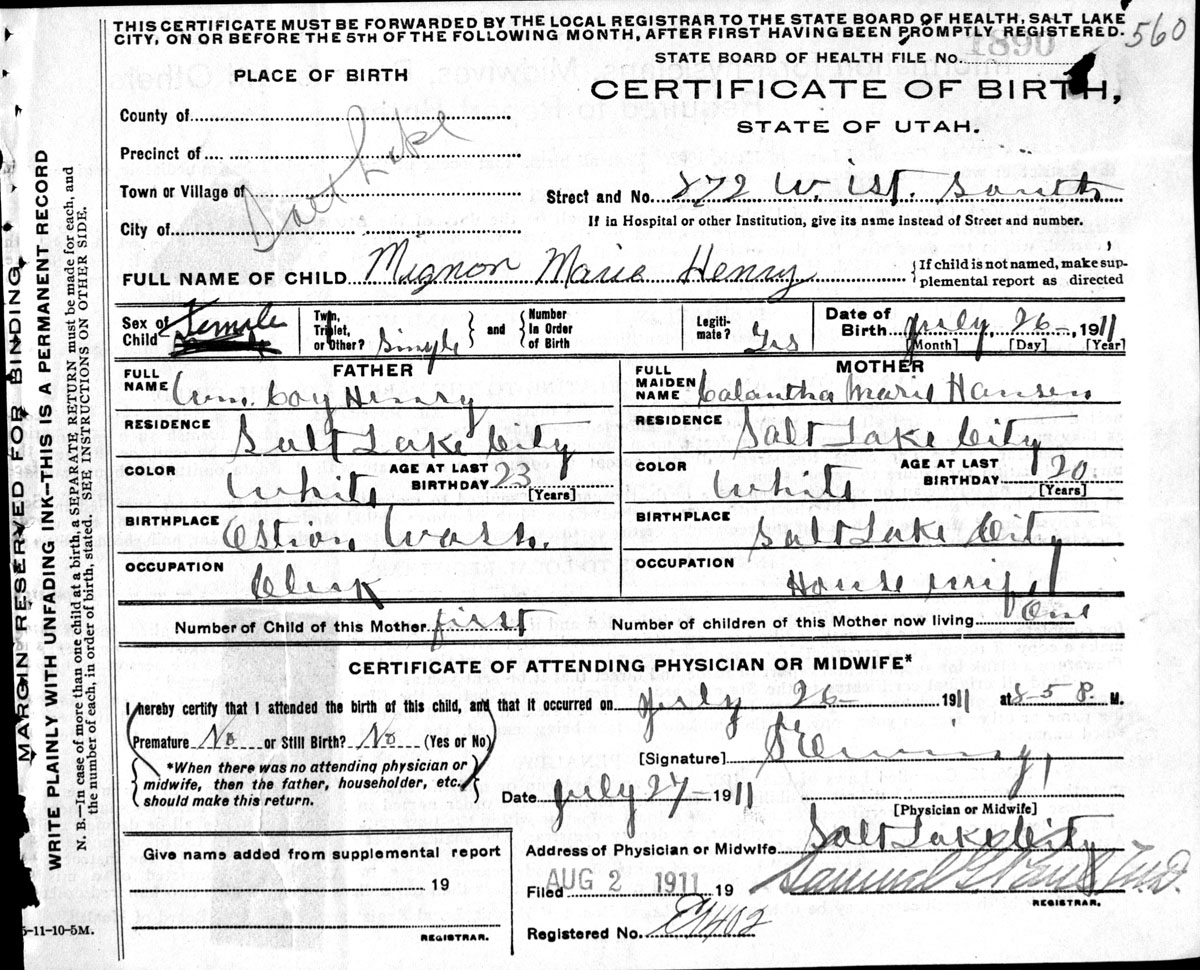 THIS CERTIFICATE MUST BE FORWARDED BY THE LOCAL REGISTRAR TO THE STATE BOARD OF HEALTH, SALT LAKE
CITY, ON OR BEFORE THE 5TH OF THE FOLLOWING MONTH, AFTER FIRST HAVING BEEN PROMPTLY REGISTERED.
560
1890
STATE BOARD OF HEALTH FILE NO.
PLACE OF BIRTH
CERTIFICATE OF BIRTH,
STATE OF UTAH.
County of
Precinct of
Town or Village of
City of
Salt Lake
Street and No. 872 W. 1st. South
If in Hospital or other Institution, give its name instead of Street and number.
FULL NAME OF CHILD Mignon Marie Henry
If child is not named, make sup-
plemental report as directed
Sex of Child Female
Twin, Triplet, or Other? Single and Number In Order of Birth
Legiti-mate? Yes
Date of Birth July 26 - , 1911
[Month] [Day] [Year]
FATHER
FULL NAME Wm. Coy Henry
RESIDENCE Salt Lake City
COLOR White
AGE AT LAST BIRTHDAY 23
[Years]
BIRTHPLACE Wash.
OCCUPATION Clerk
MOTHER
FULL MAIDEN NAME Calantha Marie Hansen
RESIDENCE Salt Lake City
COLOR White
AGE AT LAST BIRTHDAY 20
[Years]
BIRTHPLACE Salt Lake City
OCCUPATION Housewife
Number of Child of this Mother first
Number of children of this Mother now living One
CERTIFICATE OF ATTENDING PHYSICIAN OR MIDWIFE*
I hereby certify that I attended the birth of this child, and that it occurred on July 26- 1911 at 8-5 P. M.
Premature No or Still Birth? No (Yes or No)
*When there was no attending physician or
midwife, then the father, householder, etc.
should make this return.
[Signature]
Date July 27- 1911
[Physician or Midwife]
Give name added from supplemental report
19
REGISTRAR.
Address of Physician or Midwife Salt Lake City
Filed AUG 2 1911 19
Samuel G. Paul M.D.
REGISTRAR.
Registered No. 1402
MARGIN RESERVED FOR BINDING
WRITE PLAINLY WITH UNFADING INK—THIS IS A PERMANENT RECORD
N. B.—In case of more than one child at a birth, a SEPARATE RETURN must be made for each, and
the number of each, in order of birth, stated. SEE INSTRUCTIONS ON OTHER SIDE.
5-11-10-5M.